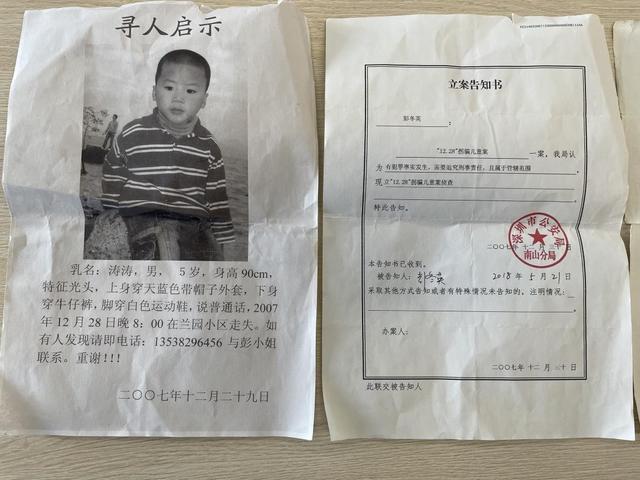 寻人启示
乳名：涛涛，男， 5岁，身高90cm，
特征光头，上身穿天蓝色带帽子外套，下身
穿牛仔裤，脚穿白色运动鞋，说普通话，2007
年12月28日晚8：00在兰园小区走失。如
有人发现请即电话：13538296456与彭小姐
联系。重谢!!!
二〇〇七年十二月二十九日
立案告知书
彭冬英 ：
"12.28"拐骗儿童案 一案，我局认
为 有犯罪事实发生，需要追究刑事责任，且属于管辖范围
现 立"12.28"拐骗儿童案侦查
特此告知。
深圳市公安局
南山分局
二〇〇七年十二月三十日
本告知书已收到。
被告知人：彭冬英 2018年5月21日
采取其他方式告知或者有特殊情况未告知的，注明情况：
办案人：
二〇〇七年十二月三十日
此联交被告知人